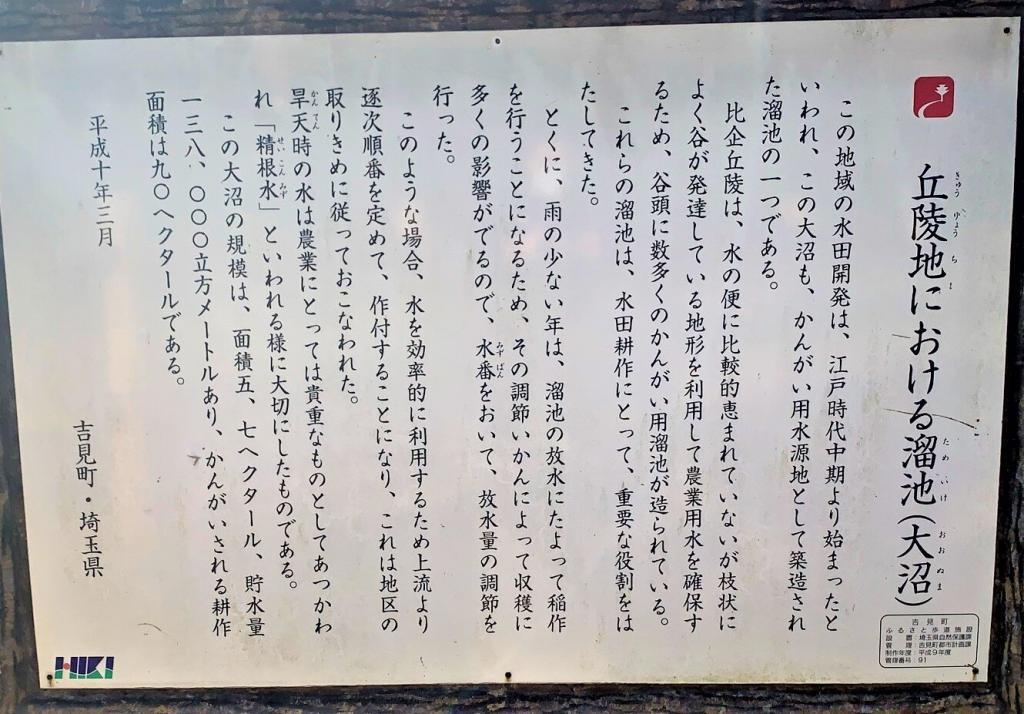 丘陵地における溜池(大沼)
きゅうりょうち
ためいけ
おおぬま
この地域の水田開発は、江戸時代中期より始まったと
いわれ、この大沼も、かんがい用水源地として築造され
た溜池の一つである。
比企丘陵は、水の便に比較的恵まれていないが枝状に
よく谷が発達している地形を利用して農業用水を確保す
るため、谷頭に数多くのかんがい用溜池が造られている。
これらの溜池は、水田耕作にとって、重要な役割をは
たしてきた。
とくに、雨の少ない年は、溜池の放水にたよって稲作
を行うことになるため、その調節いかんによって収穫に
多くの影響がでるので、水番をおいて、放水量の調節を
みずばん
行った。
このような場合、水を効率的に利用するため上流より
逐次順番を定めて、作付することになり、これは地区の
取りきめに従っておこなわれた。
旱天時の水は農業にとっては貴重なものとしてあつかわ
かんてん
れ「精根水」といわれる様に大切にしたものである。
せいこんみず
この大沼の規模は、面積五、七ヘクタール、貯水量
一三八、〇〇〇立方メートルあり、かんがいされる耕作
面積は九〇ヘクタールである。
平成十年三月
吉見町・埼玉県
吉見町
ふるさと歩道施設
設置:埼玉県自然保護課
管理:吉見町都市計画課
制作年度:平成9年度
管理番号:91
HIKI